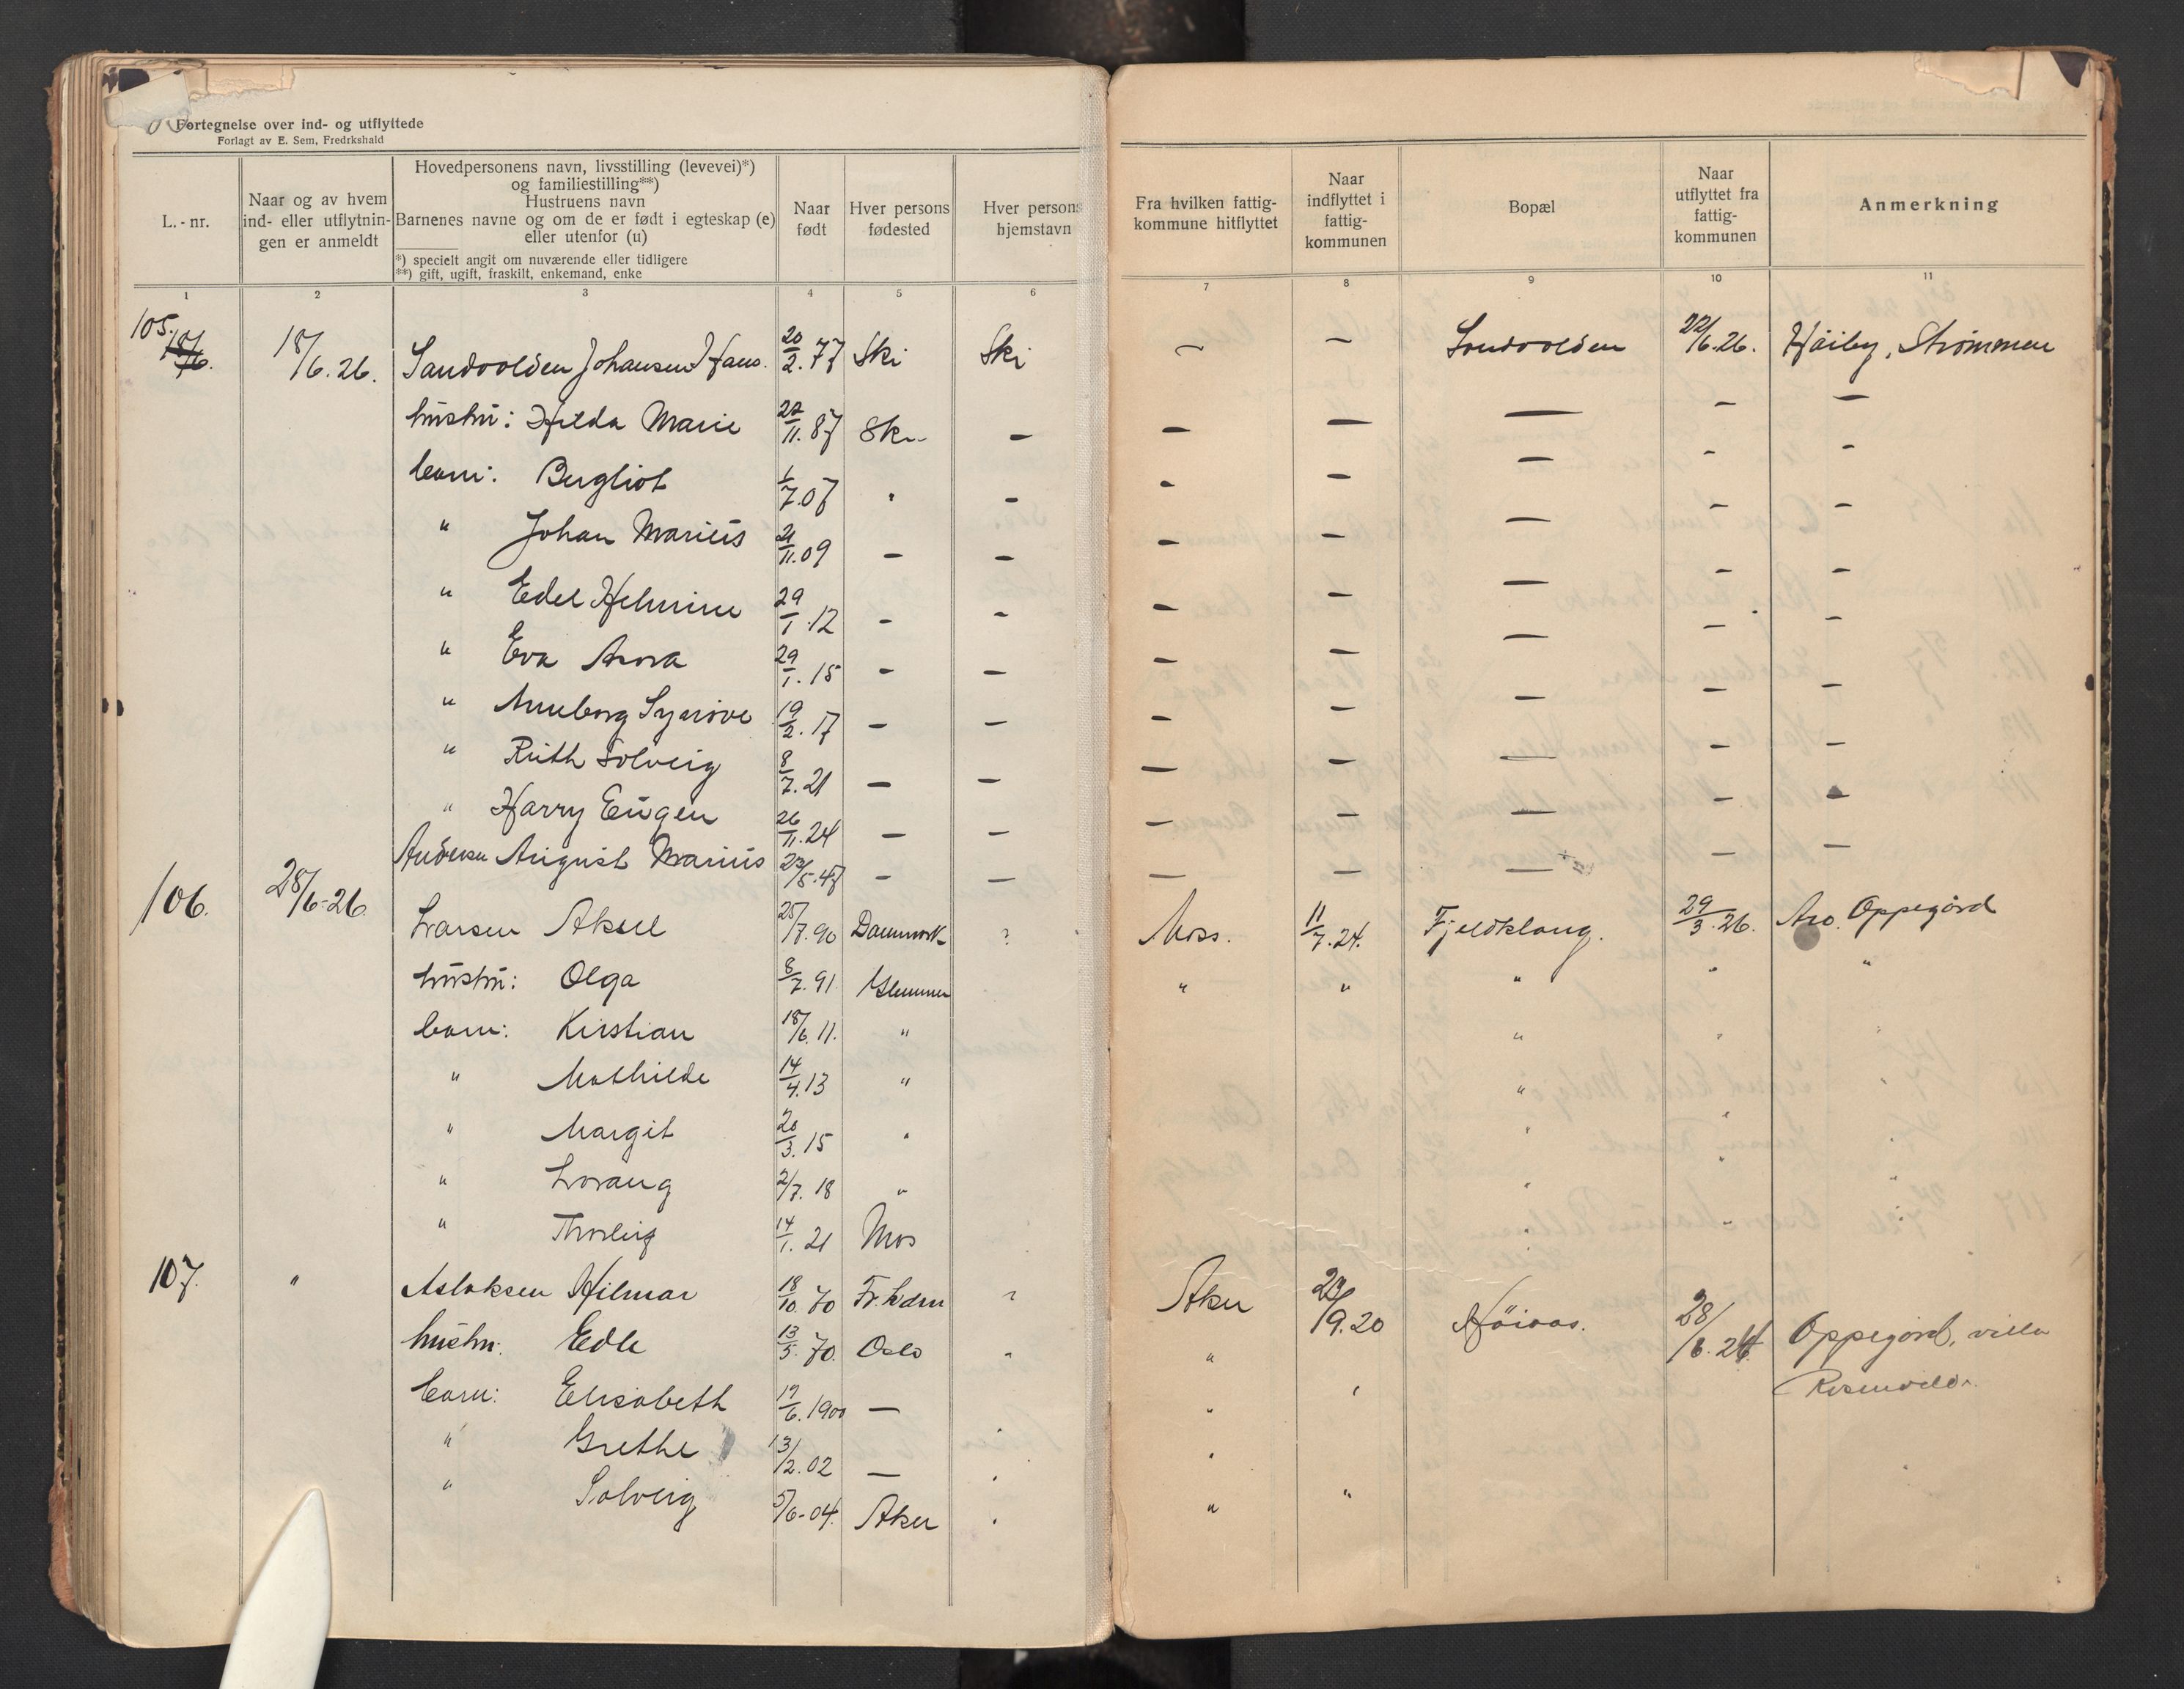 Fortegnelse over ind- og utflyttede
Forlagt av E. Sem, Fredrkshald
L.-nr.
Naar og av hvem
ind- eller utflytnin-
gen er anmeldt
Hovedpersonens navn, livsstilling (levevei)*)
og familiestilling**)
Hustruens navn
Barnenes navne og om de er født i egteskap (e)
eller utenfor (u)
*) specielt angit om nuværende eller tidligere
**) gift, ugift, fraskilt, enkemand, enke
Naar
født
Hver persons
fødested
Hver persons
hjemstavn
Fra hvilken fattig-
kommune hitflyttet
Naar
indflyttet i
fattig-
kommunen
Bopæl
Naar
utflyttet fra
fattig-
kommunen
Anmerkning
1 2 3 4 5 6 7 8 9 10 11
105. 18/6. 26. Sandvolden Johansen Hans. 20/2. 77 Ski Ski — — Sandvolden 22/6. 26. Häiby, Strømmen
hustru: Hilda Marie 22/11. 87 Ski — — — — — —
barn: Bergliot 1/7. 07 " — — — — — —
" Johan Marius 21/11. 09 — — — — — — —
" Edel Helmine 29/1. 12 — — — — — — —
" Eva Arora 29/1. 15 — — — — — — —
" Anneborg Synøve 19/2. 17 — — — — — — —
" Ruth Solveig 8/7. 21 — — — — — — —
" Harry Eugen 26/11. 24 — — — — — — —
Andersen August Marius 23/5. 47 — — — — — — —
106. 28/6-26. Larsen Aksel 25/7. 90 Danmark ? Moss. 11/7. 24. Fjeldklang. 29/3. 26. Aro. Oppegård
hustru: Olga 8/7. 91 Glemmen " " " " "
barn: Kirstian 18/6. 11. " " " "
" Mathilde 14/4. 13 " " " "
" Margit 20/3. 15 " " " "
" Lorang 2/7. 18 " " " "
" Thorleif 14/1. 21 Mos " " "
107. " Aslaksen Hilmar 18/10. 70 Fr. ? Aker 29/9. 20 Höiaas. 28/6. 26. Oppegård, villa
hustru: Edle 13/5. 70. Oslo " " "
barn: Elisabeth 17/6. 1900 — "
" Grethe 13/2. 02 — " "
" Solveig 5/6-04. Aker " " "